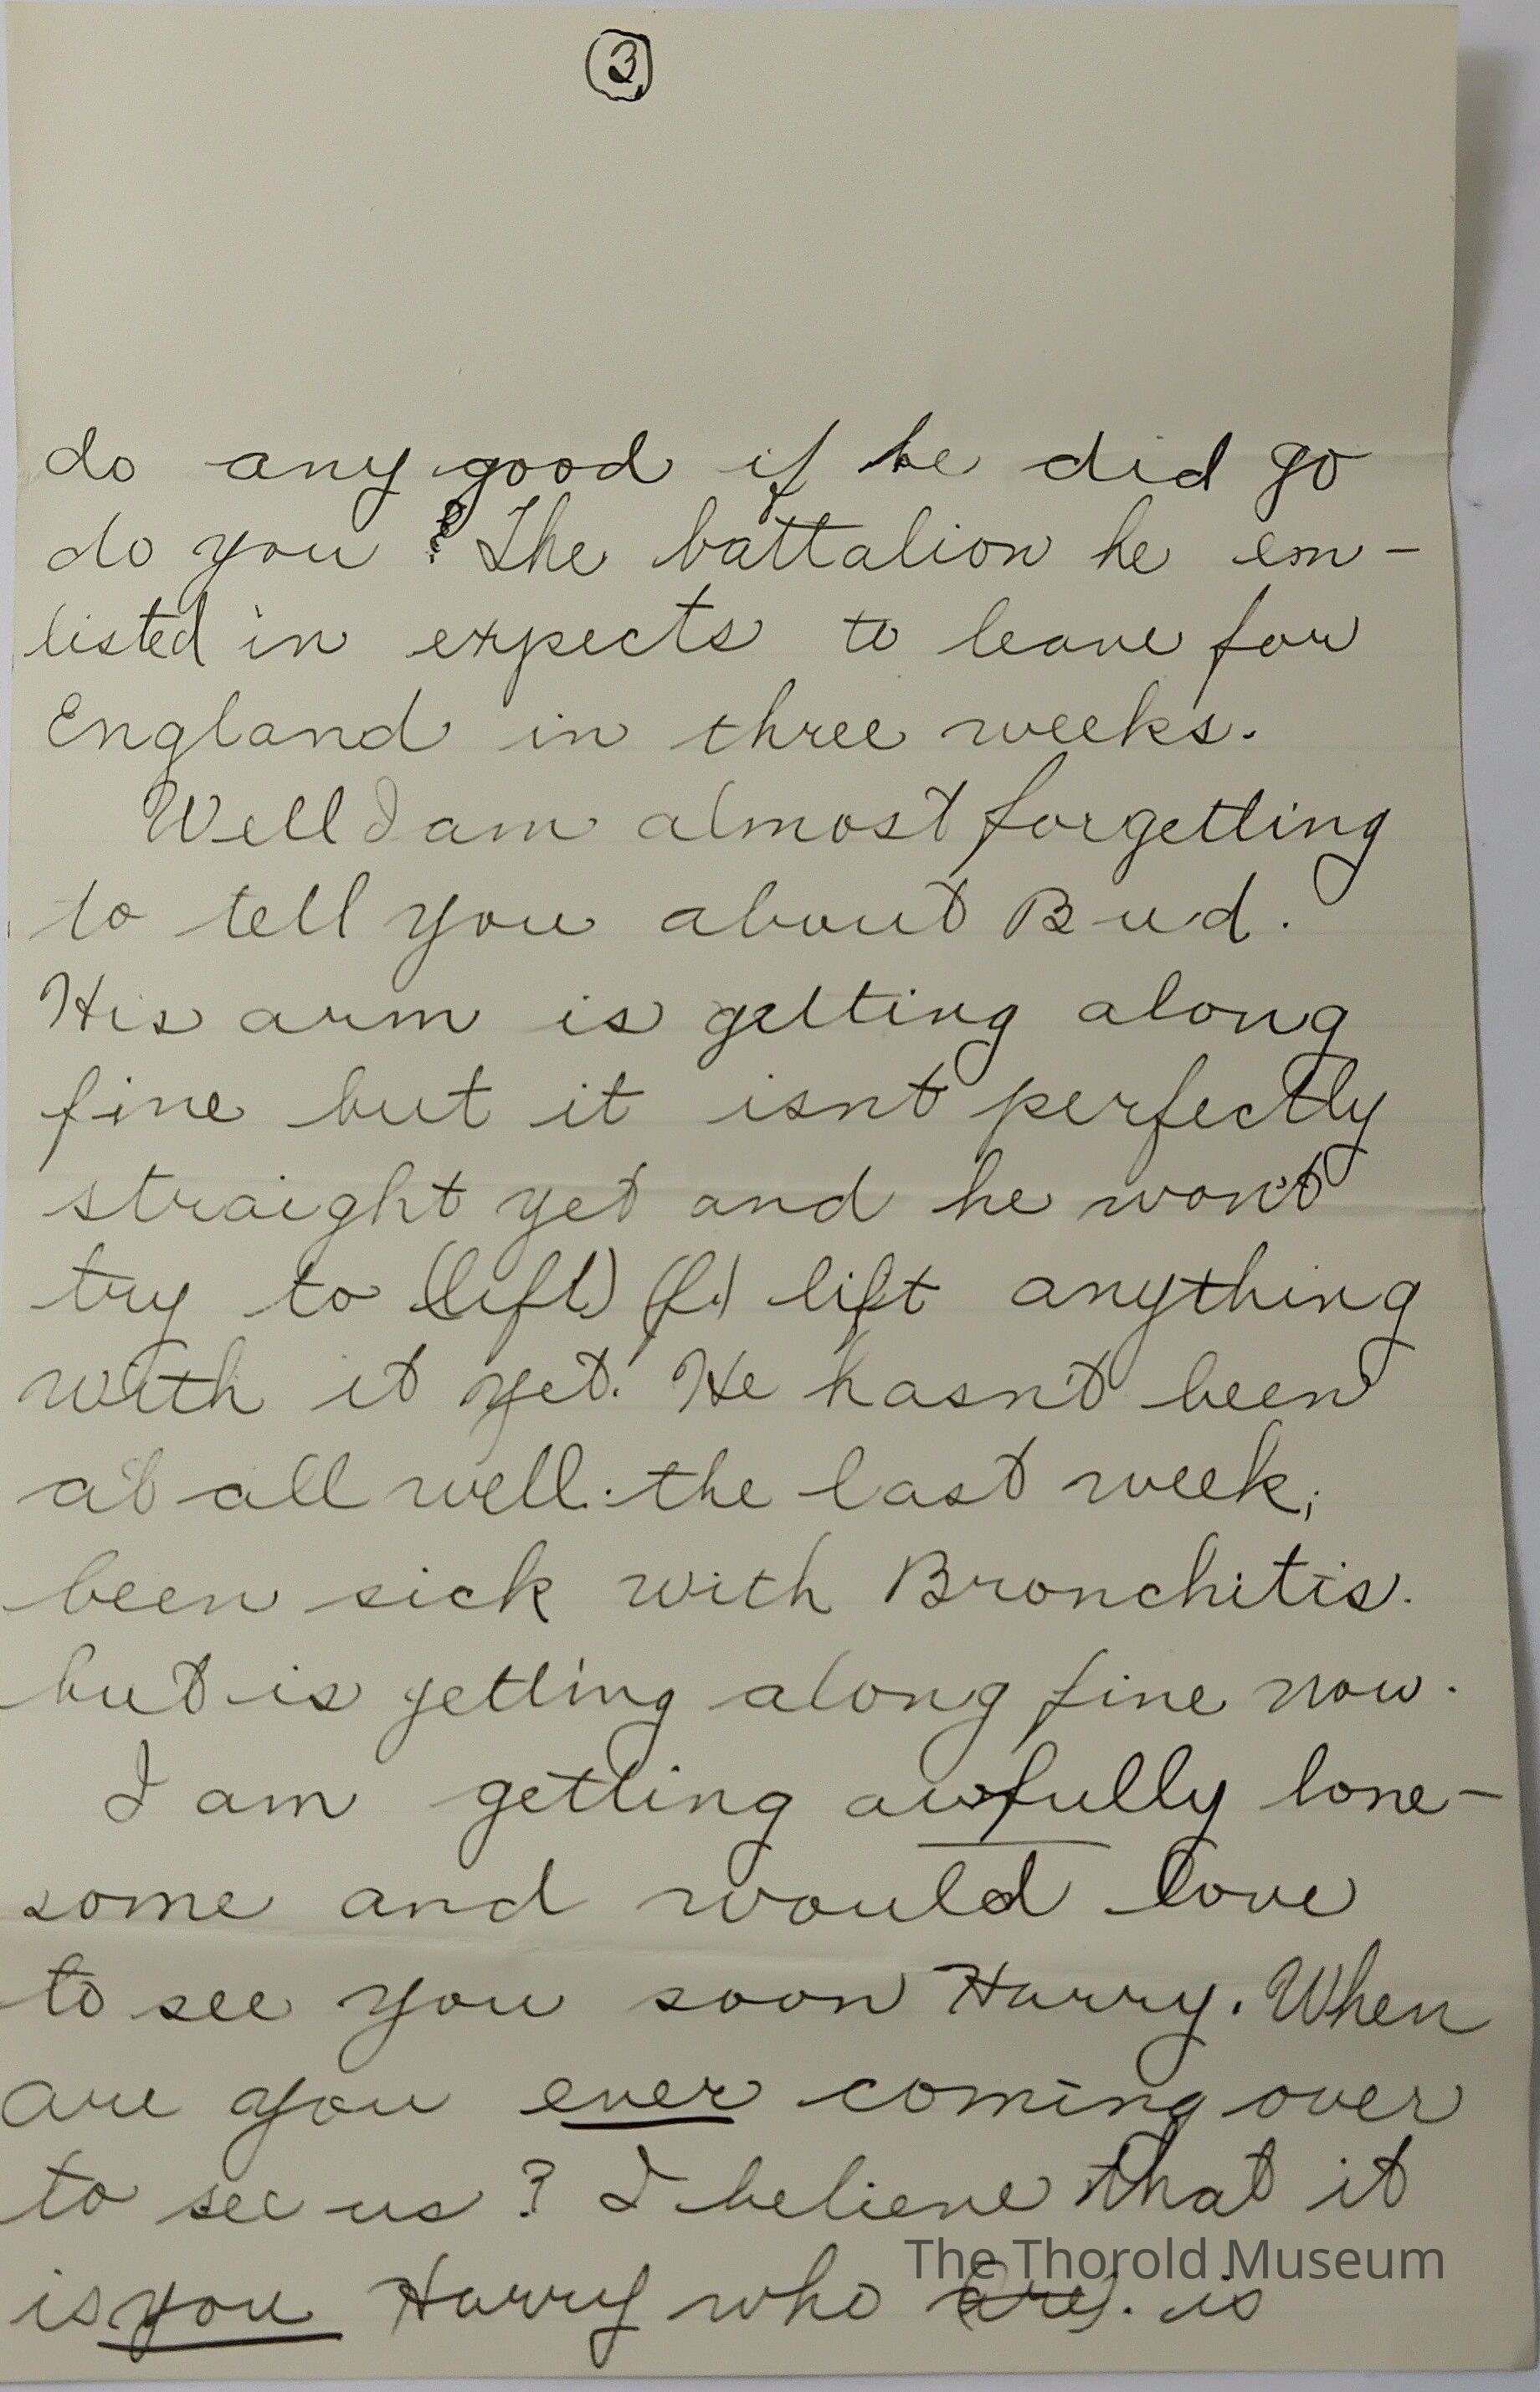 3
do any good if he did go
do you? The battalion he em-
listed in expects to leave for
England in three weeks.
Well I am almost forgetting
to tell you about Bud.
His arm is getting along
fine but it isnt perfectly
straight yet and he won't
try to (lift) (f.) lift anything
with it yet. He hasn't been
at all well. the last week,
been sick with Bronchitis.
but is getting along fine now.
I am getting awfully lone-
some and would love
to see you soon Harry. When
are you ever coming over
to see us? I believe that it
The Thorold Museum
is you Harry who (are). is